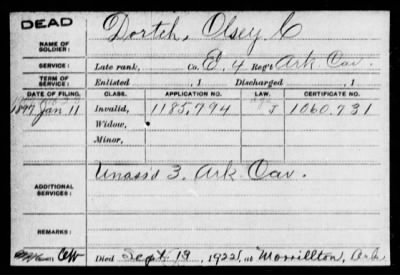 DEAD
NAME OF SOLDIER: Dortch, Olsey C
SERVICE: Late rank, Co. E. 4 Reg't Ark Cav.
TERM OF SERVICE: Enlisted , 1 Discharged , 1
DATE OF FILING. CLASS. APPLICATION NO. LAW. CERTIFICATE NO.
1897 Jan. 11 Invalid, 1185,794 J 1060.731
Widow,
Minor,
ADDITIONAL SERVICES: Unass'd 3. Ark Cav.
REMARKS:
Died Sept. 19, 1922, at Morrillton, Ark